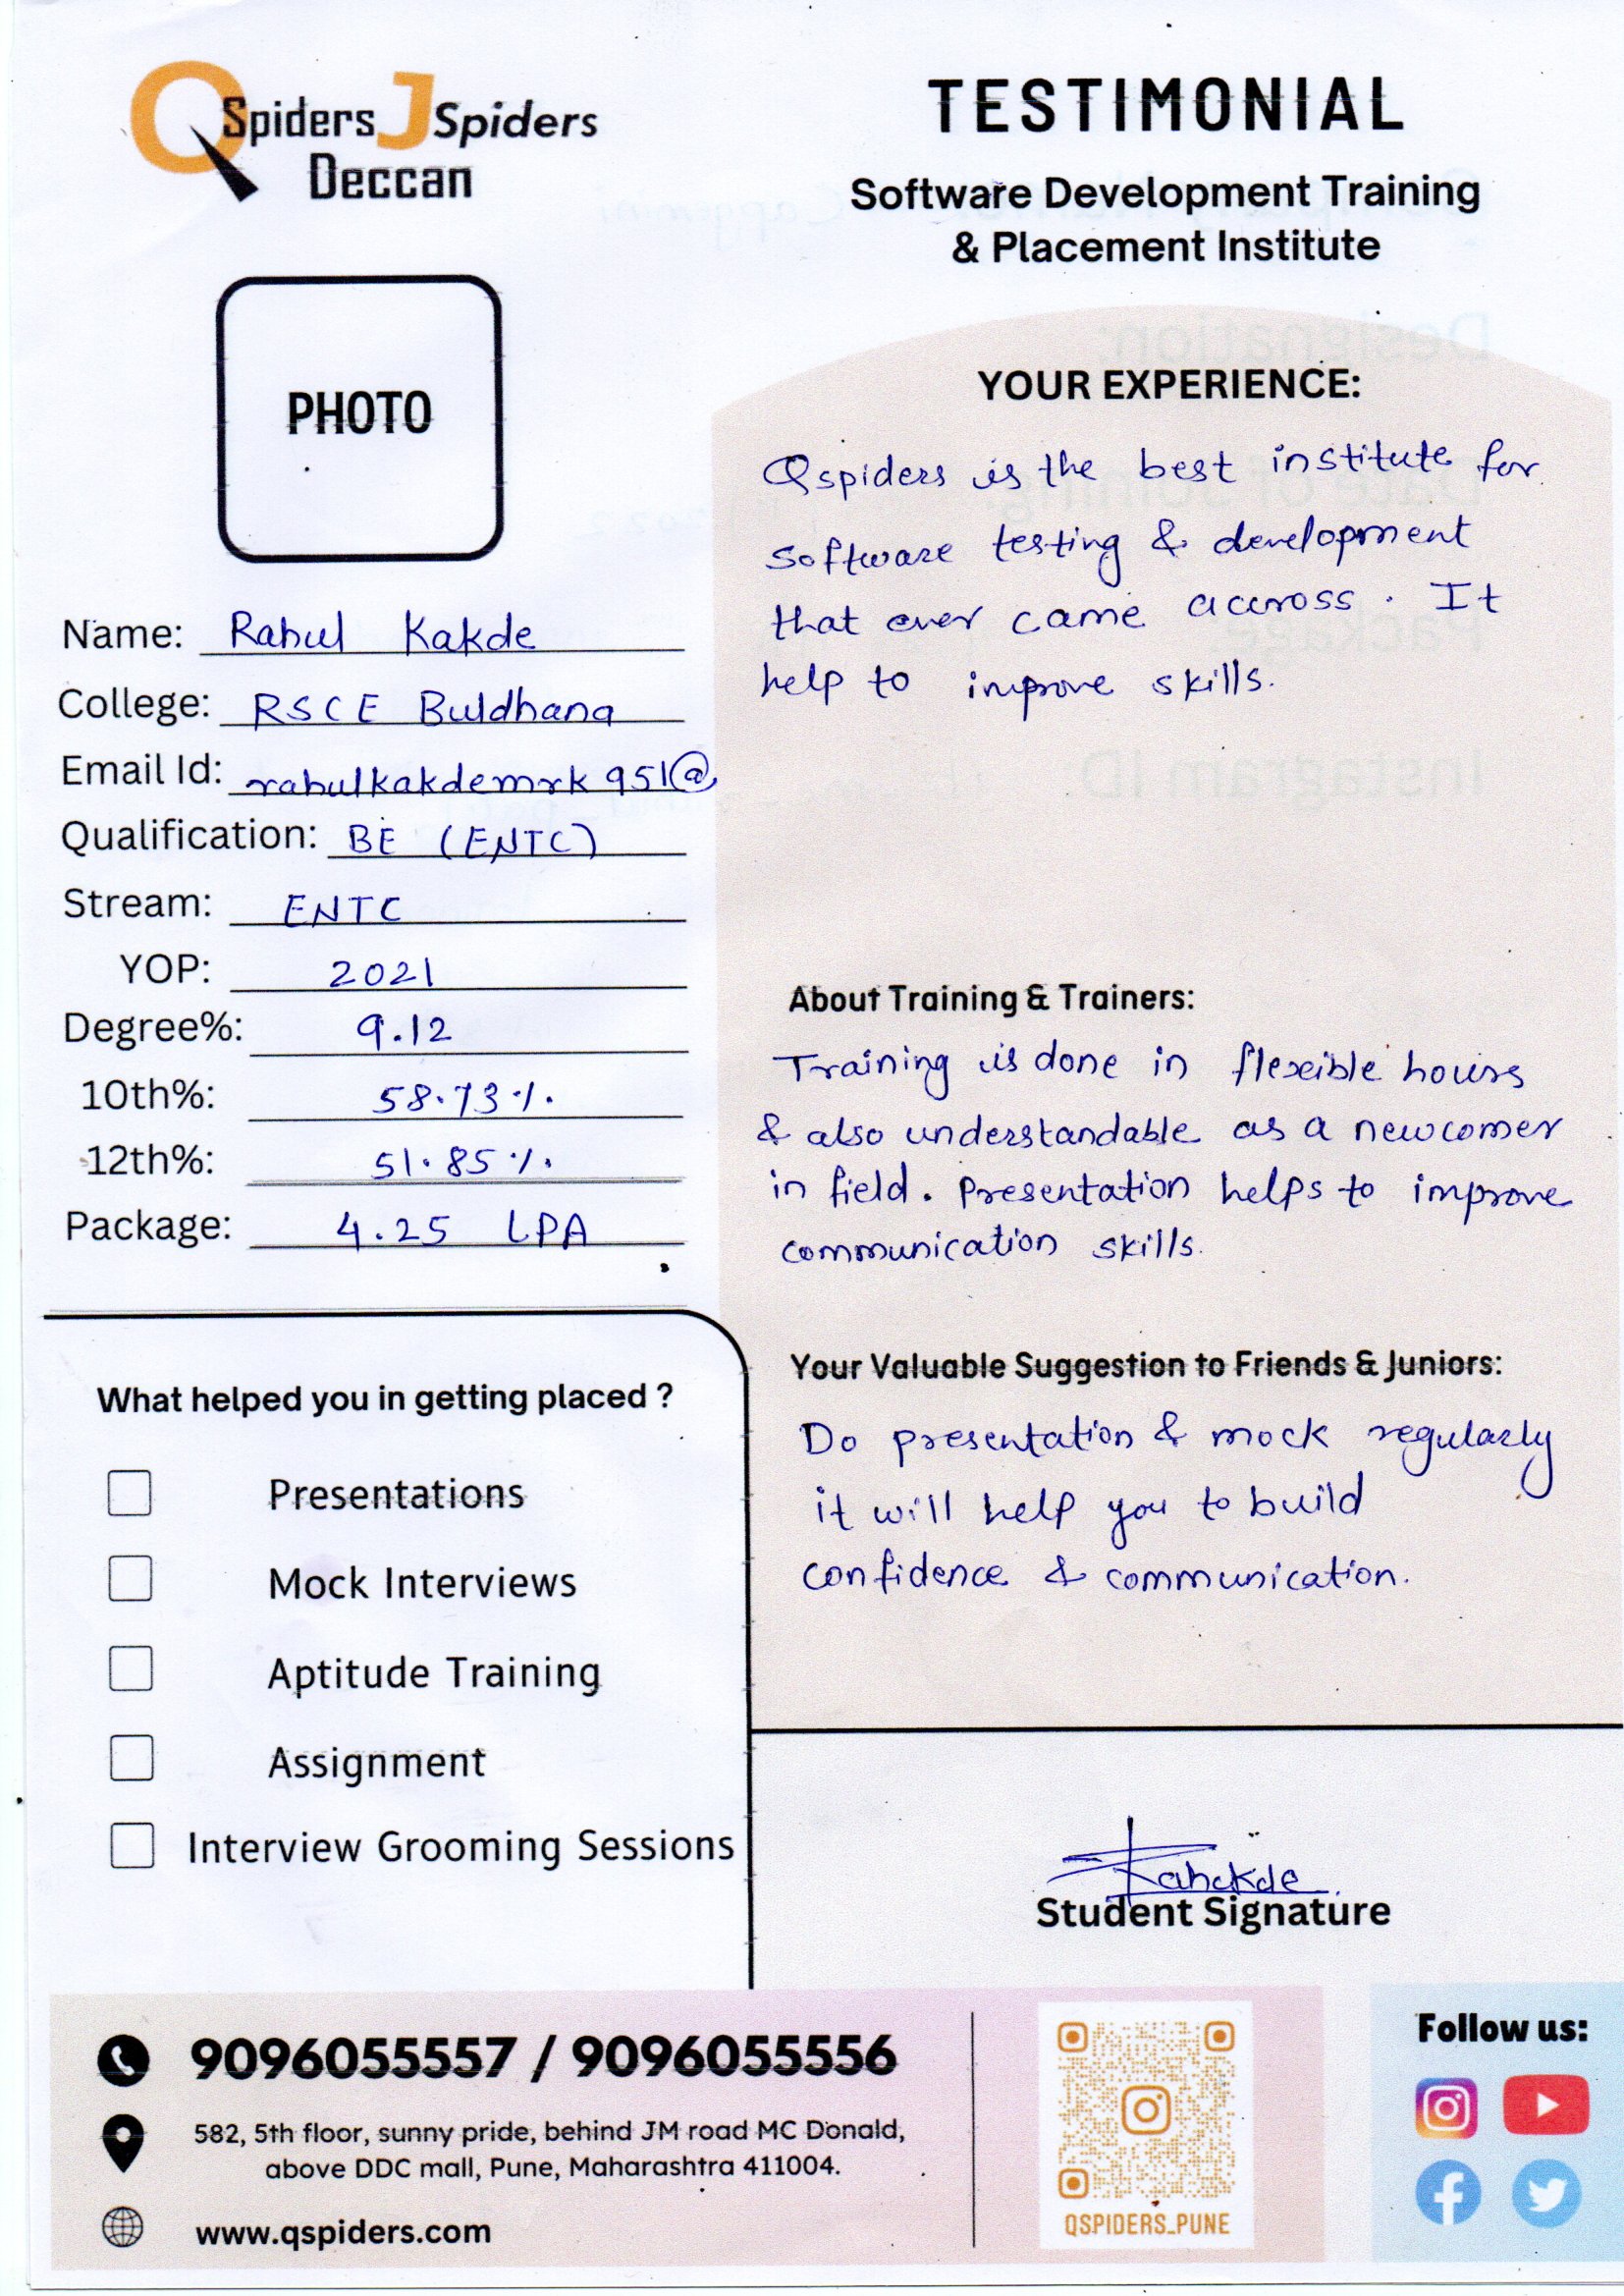 QSpiders JSpiders
Deccan
TESTIMONIAL
Software Development Training
& Placement Institute
PHOTO
Name: Rahul Kakde
College: RSCE Buldhana
Email Id: rahulkakdemrk951@
Qualification: BE (ENTC)
Stream: ENTC
YOP: 2021
Degree%: 9.12
10th%: 58.73%.
12th%: 51.85%.
Package: 4.25 LPA
What helped you in getting placed ?
Presentations
Mock Interviews
Aptitude Training
Assignment
Interview Grooming Sessions
YOUR EXPERIENCE:
Qspiders is the best institute for
software testing & development
that ever came accross. It
help to improve skills.
About Training & Trainers:
Training is done in flexible hours
& also understandable as a newcomer
in field. Presentation helps to improve
communication skills.
Your Valuable Suggestion to Friends & Juniors:
Do presentation & mock regularly
it will help you to build
confidence & communication.
Student Signature
9096055557 / 9096055556
582, 5th floor, sunny pride, behind JM road MC Donald,
above DDC mall, Pune, Maharashtra 411004.
www.qspiders.com
QSPIDERS_PUNE
Follow us: